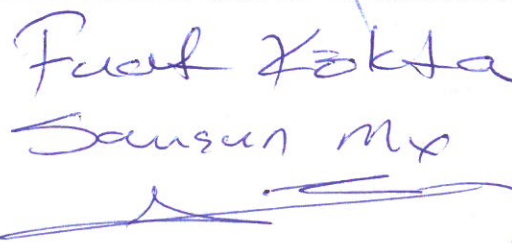 Fuat Kökta
Samsun Mv